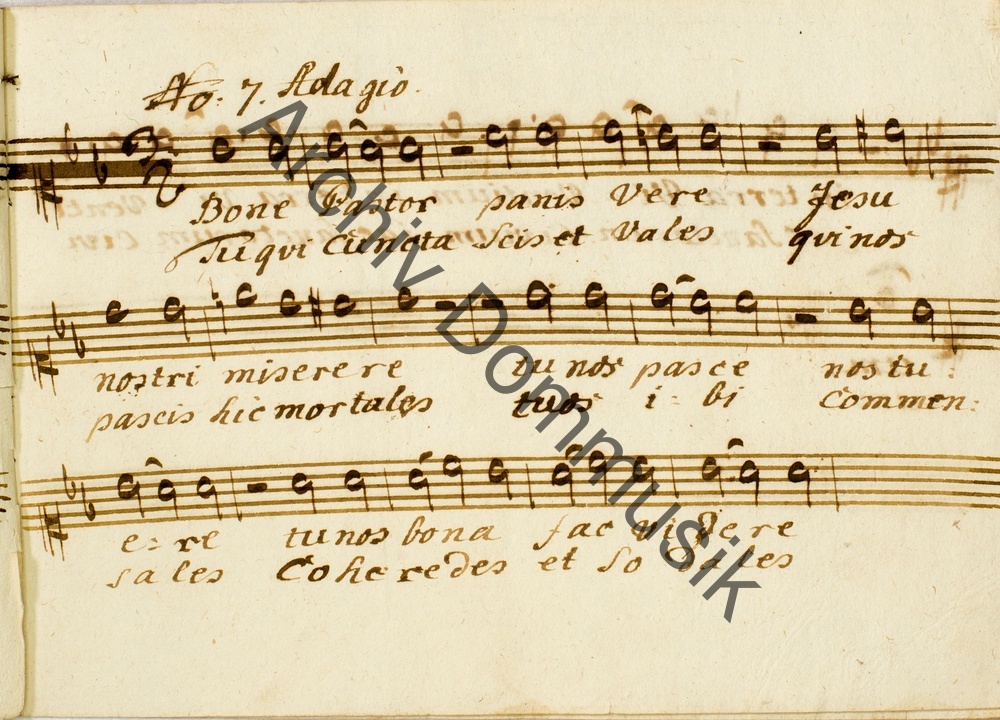 No. 7. Adagio.
Bone Pastor panis Vere Jesu
Tu qui Cuncta Scis et Vales qui nos
nostri miserere tu nos pasce nos tu:
pascis hic mortales tuos i: bi Commen:
e:re tu nos bona fac videre
sales Coheredes et So dales
Archiv Dommusik